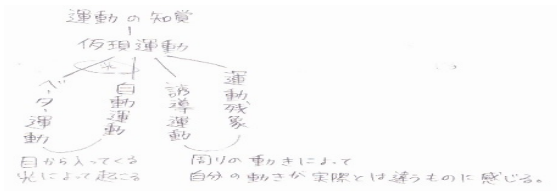 運動の知覚
仮現運動
光
ベータ運動
自動運動
誘導運動
運動残象
目から入ってくる
光によって起こる
周りの動きによって
自分の動きが実際とは違うものに感じる。